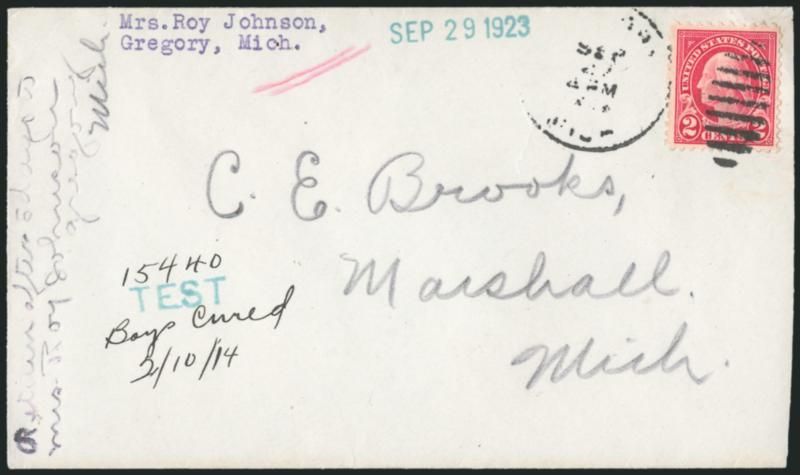 Mrs. Roy Johnson,
Gregory, Mich.
SEP 29 1923
SEP
PM
MICH
UNITED STATES POSTAGE
2 CENTS 2
C. E. Brooks,
Marshall.
Mich.
15440
TEST
Boys Cured
2/10/14
Return after 5 days to
Mrs. Roy Johnson
Gregory
Mich.